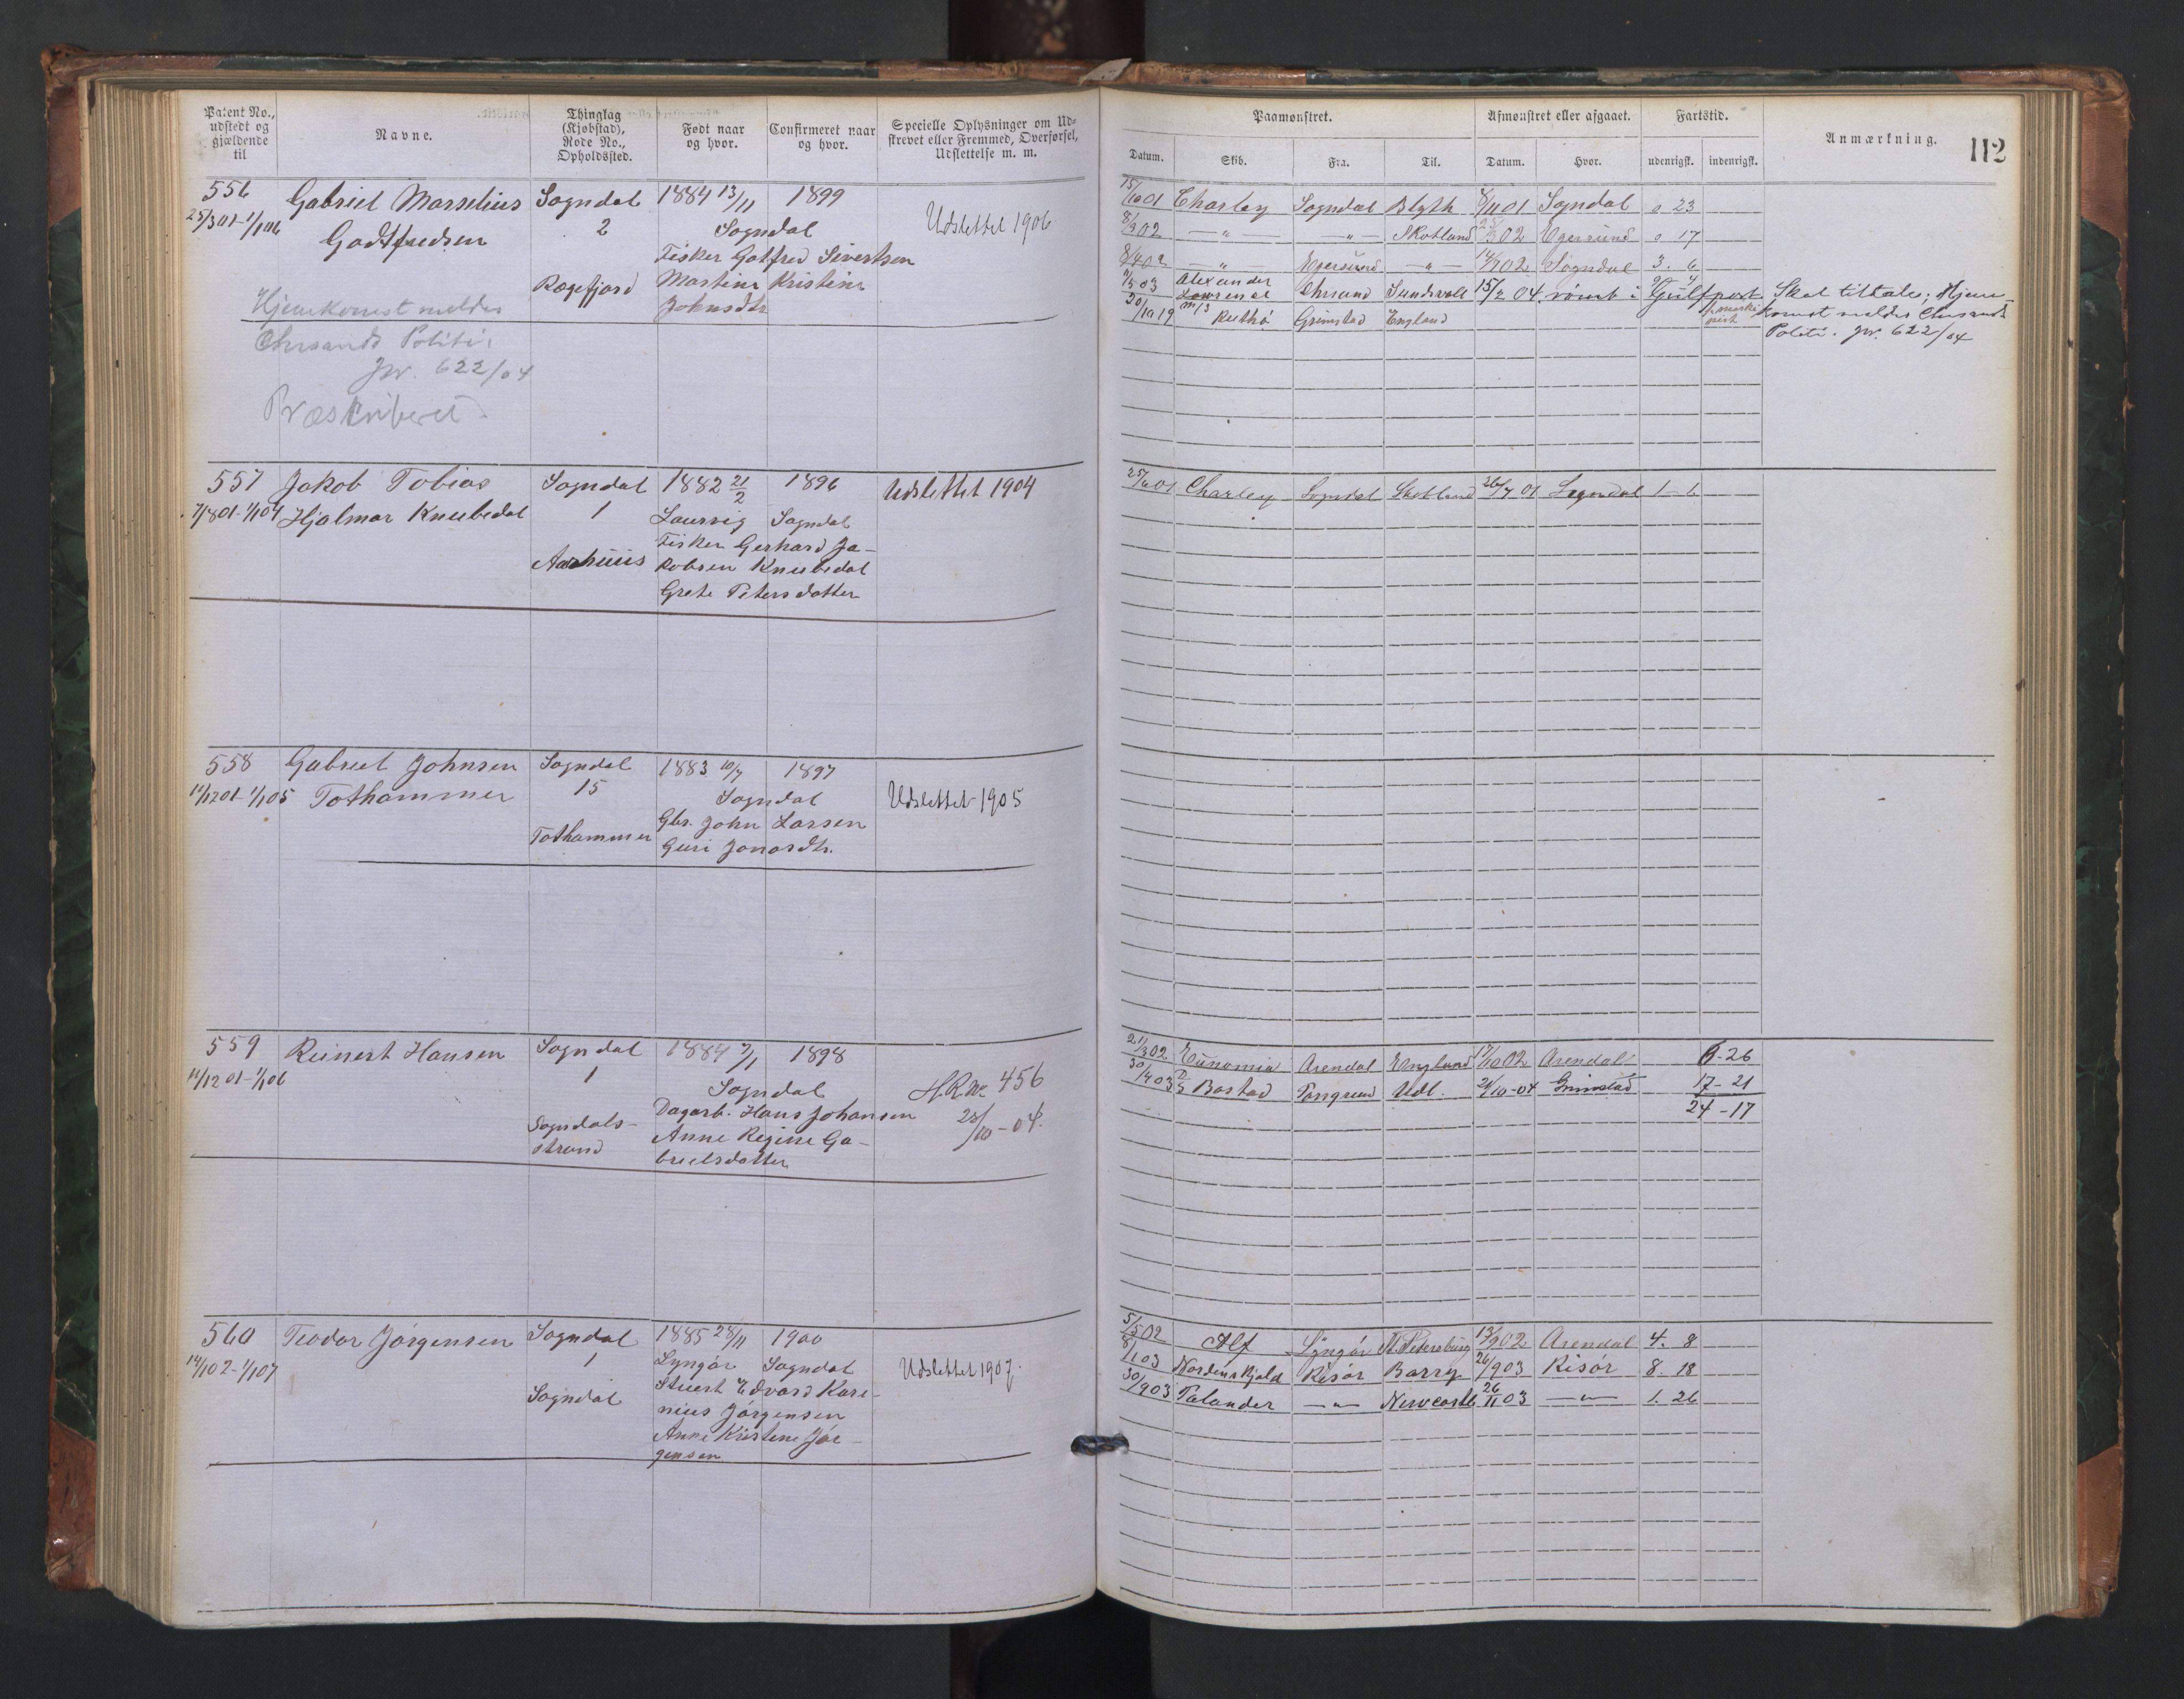 Patent No., udstedt og gjældende til
Navne.
Thinglag (Kjøbstad), Rode No., Opholdssted.
Født naar og hvor.
Confirmeret naar og hvor.
Specielle Oplysninger om Udskrevet eller Fremmed, Overførsel, Udslettelse m. m.
556 Gabriel Marselius Sogndal 1884 13/11 1899
25/3 01-1/1 06 Godtfredsen 2 Sogndal Udslettet 1906
Fisker Gotfred Sivertsen
Rægefjord Martine Kristine
Johnsdtr
Hjemkomst meldes
Chrsands Politi
Jr. 622/04
Præskriberet
557 Jakob Tobias Sogndal 1882 21/2 1896 Udslettet 1904
7/8 01-1/1 04 Hjalmar Knubedal 1 Laurvig Sogndal
Fisker Gerhard Ja-
Aarhuus kobsen Knubedal
Grete Petersdatter
558 Gabriel Johnsen Sogndal 1883 10/7 1897
11/12 01-1/1 05 Tothammer 15 Sogndal Udslettet 1905
Gbr. John Larsen
Tothammer Guri Jonasdtr.
559 Reinert Hansen Sogndal 1884 7/1 1898
11/12 01-1/1 06 1 Sogndal H.R. No 456
Sogndals- Dagarb. Hans Johansen 28/10-04.
strand Anne Regine Ga-
brielsdatter
560 Teodor Jørgensen Sogndal 1885 28/11 1900
14/1 02-1/1 07 1 Lyngør Sogndal Udslettet 1907.
Sogndal Stuert Edvard Kare-
nius Jørgensen
Anne Kristine Jør-
gensen
Paamønstret.
Afmønstret eller afgaaet.
Fartstid.
Anmærkning.
112
Datum. Skib. Fra. Til. Datum. Hvor. udenrigsk. indenrigsk.
15/10 01 Charley Sogndal Blyth 8/11 01 Sogndal 0 23
8/3 02 — " — — " — Skotland 02 Egersund 0 17
8/4 02 — " — Egersund — " — 14/7 02 Sogndal 3. 6
7/5 03 Alexander Lawrence Chrsand Sundsvall 15/2 04 rømt i Gulfport Skal tiltales; Hjem-
20/10 19 Ruthø Grimstad England komst meldes Chrsands
Politi. Jr. 622/04
25/6 01 Charley Sogndal Skotland 26/7 01 Sogndal 1-1
21/3 02 Eunomia Arendal England 17/10 02 Arendal 6-26
30/4 03 Bastad Porsgrund Udl. 21/10-04 Grimstad 17-21
24-17
5/5 02 Alf Lyngør St. Petersburg 13/9 02 Arendal 4. 8
8/1 03 Nordenskjold Risør Barry 26/9 03 Risør 8. 18
30/9 03 Palander — " — Newcastle 26/11 03 — " — 1. 26